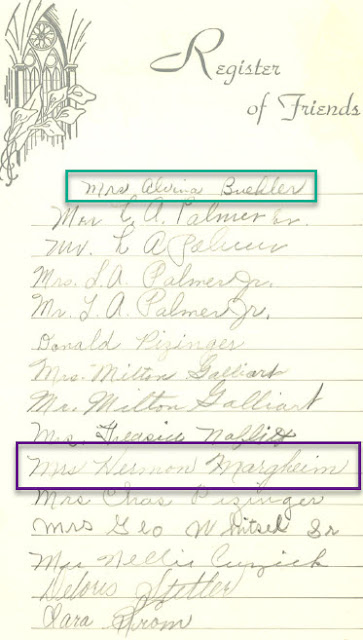 Register
of Friends
Mrs Alvina Buehler
Mrs L. A. Palmer Sr.
Mr. L A Palmer
Mrs. L. A. Palmer Jr.
Mr. L. A. Palmer Jr.
Donald Pizinger
Mrs. Milton Galliart
Mr. Milton Galliart
Mrs.
Mrs Hermon Margheim
Mrs Chas Pizinger
Mrs Geo Whitsel Sr
Mrs Nellie
Deloris Stetler
Clara Strom